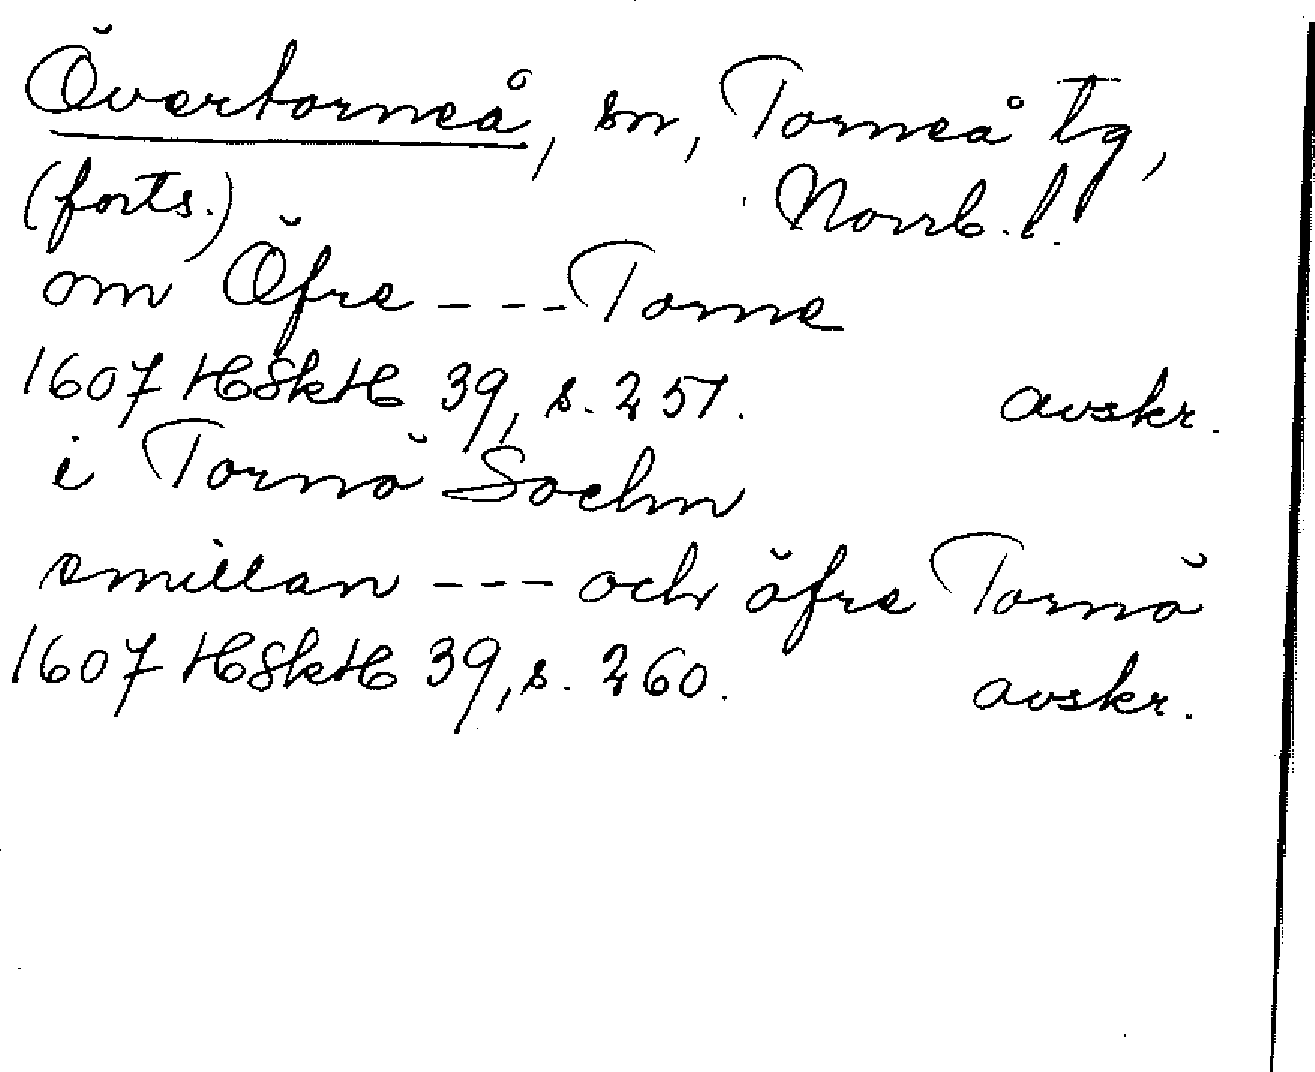 Övertorneå, sn, Torneå tg,
(forts.) Norrb. l.
om Öfre --- Torne
1607 HSkH 39, s. 251. avskr.
i Tornö Sochn
emillan --- och öfre Tornö
1607 HSkH 39, s. 260. avskr.